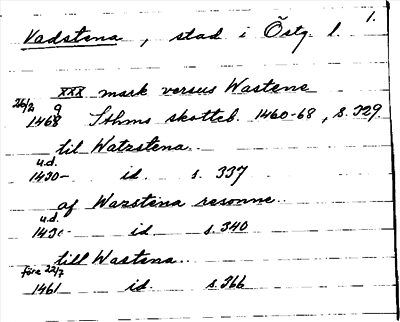 1.
Vadstena, stad i Östg l.
XXX mark versus Wastena
26/2 9
1468 Sthms skotteb. 1460-68, s. 329
til Watzstena..
u.d.
1430- id s. 337
af Wazstena resonne..
u.d.
143- id s. 340
till Wastena..
före 22/7
1461 id s. 366